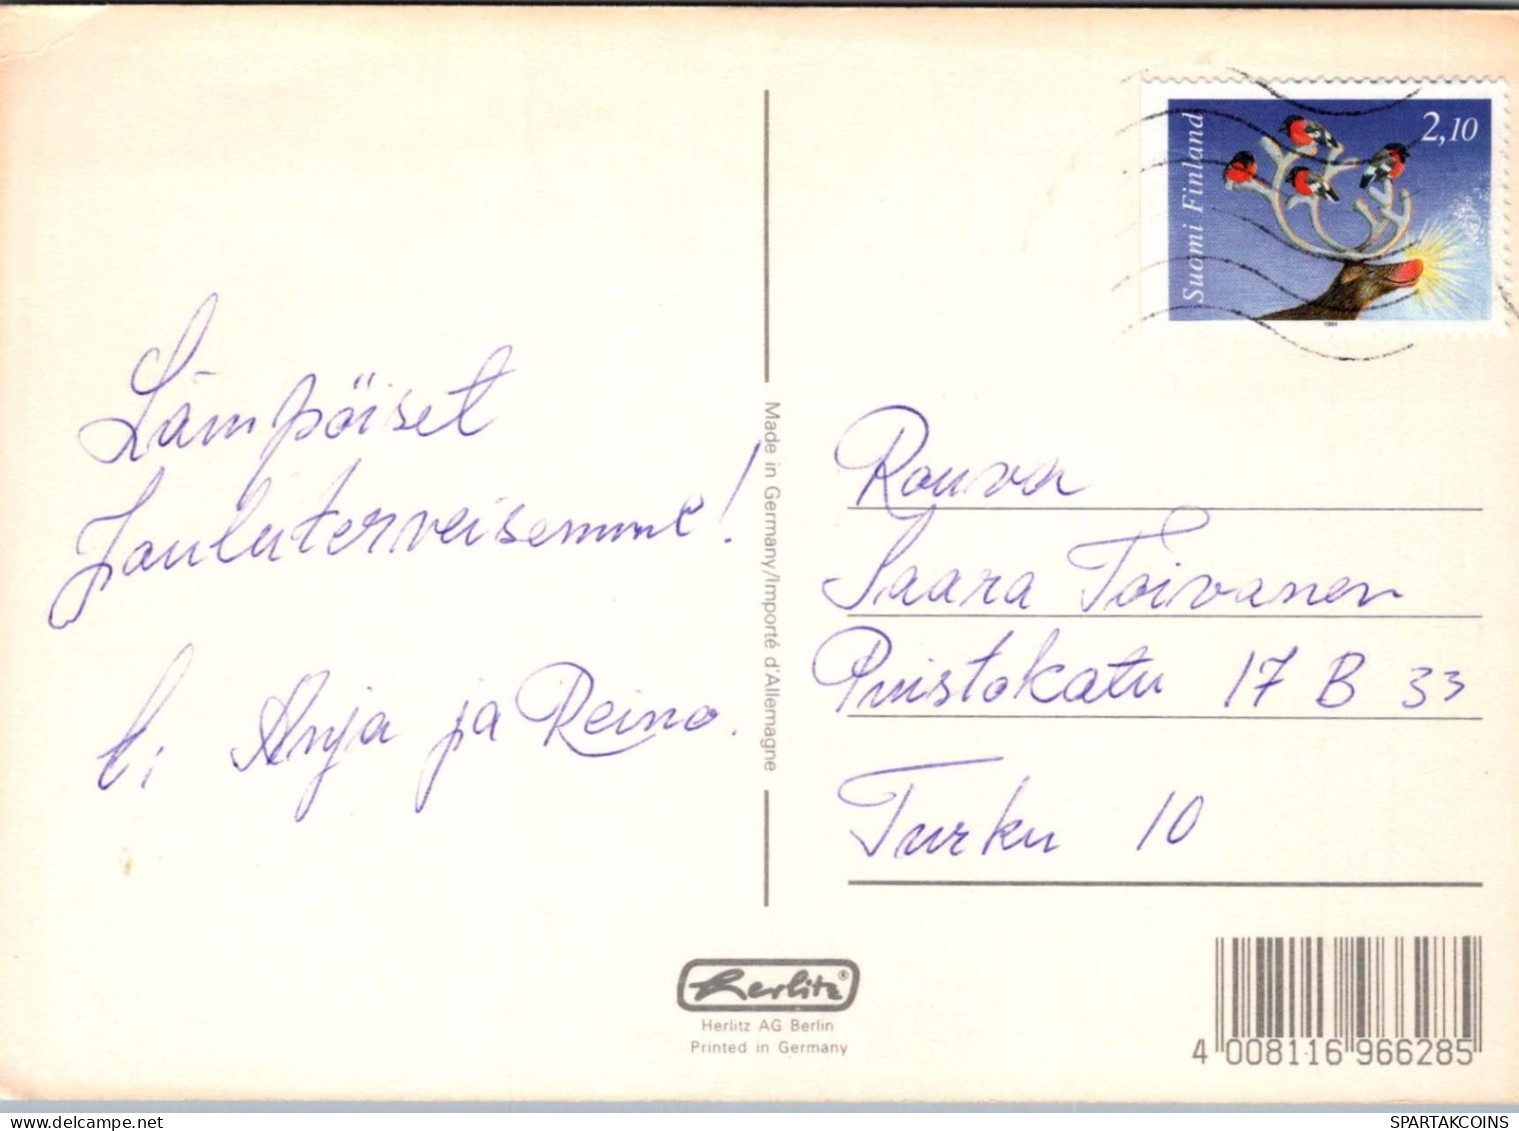 Suomi Finland
2,10
1994
Lämpöiset
Jouluterveisemme!
t; Anja ja Reino.
Made in Germany/Importé d'Allemagne
Rouva
Saara Toivanen
Puistokatu 17 B 33
Turku 10
Herlitz®
Herlitz AG Berlin
Printed in Germany
4 008116 966285
delcampe.net
SPARTAKCOINS